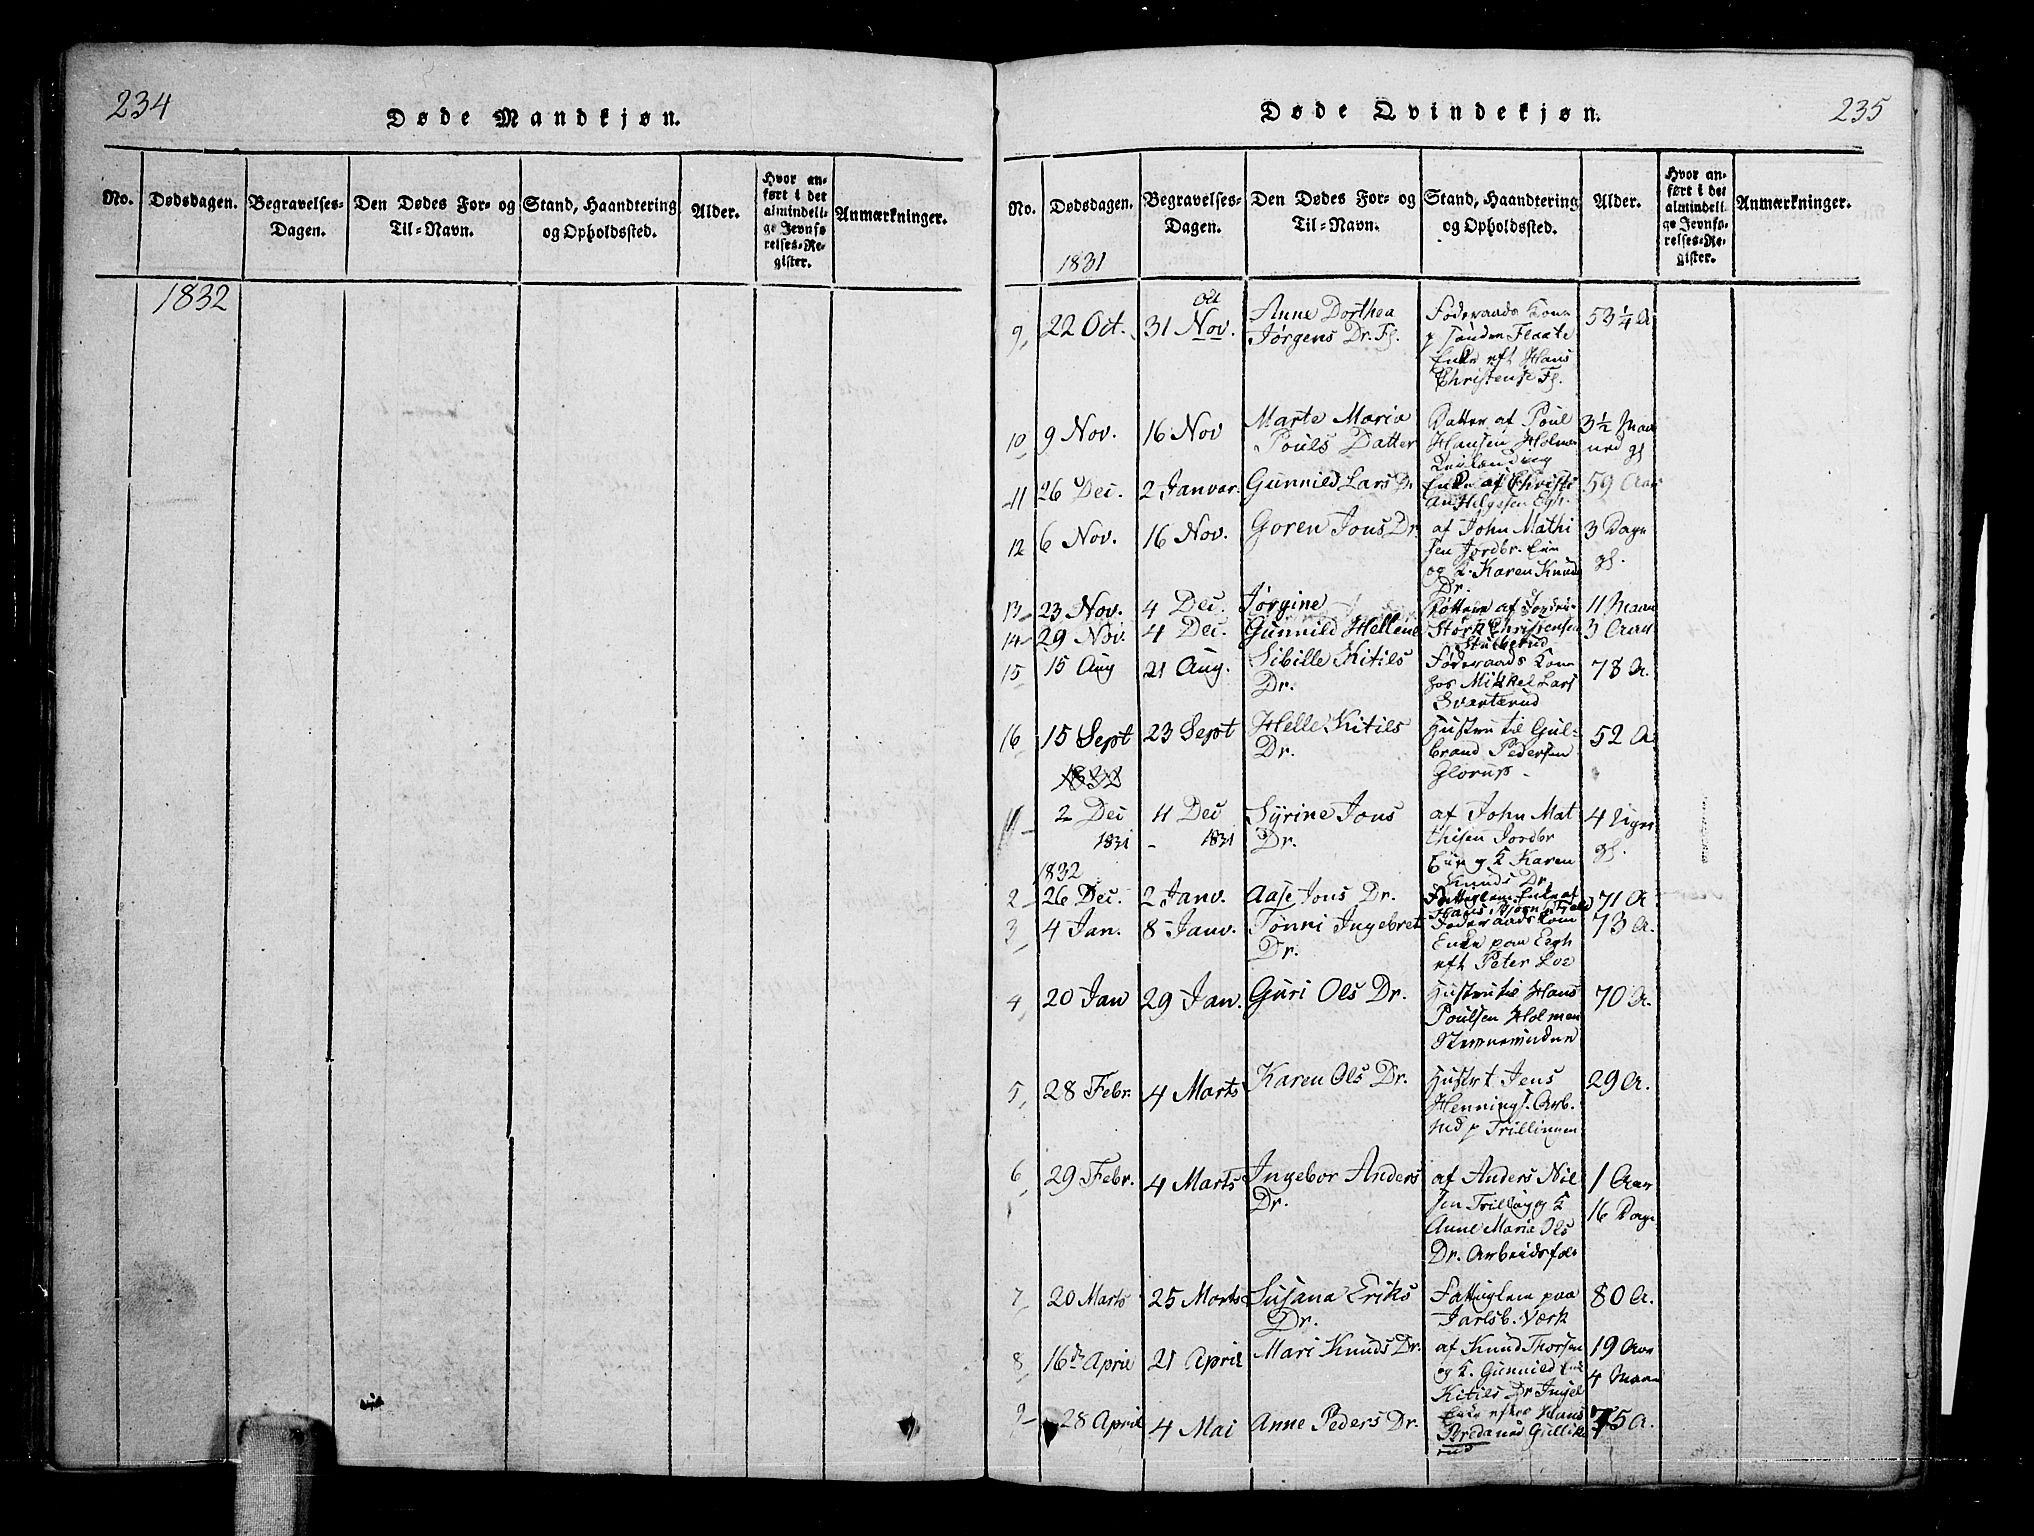 234
Døde Mandkjøn.
No.
Dødsdagen.
Begravelses-
Dagen.
Den Dødes For- og
Til-Navn.
Stand, Haandtering
og Opholdssted.
Alder.
Hvor an-
ført i det
almindeli-
ge Jevnfø-
relses-Re-
gister.
Anmærkninger.
1832
Døde Qvindekjøn.
235
No.
Dødsdagen.
1831
Begravelses-
Dagen.
Den Dødes For- og
Til-Navn.
Stand, Haandtering
og Opholdssted.
Alder.
Hvor an-
ført i det
almindeli-
ge Jevnfø-
relses-Re-
gister.
Anmærkninger.
9, 22 Oct. 31 Nov. Oct Anne Dorthea
Jørgens Dr. Fl.
Føderaads Kone
p Søndre Flaate
Enke eft Hans
Christense Fl.
53 1/4 A
10 9 Nov. 16 Nov Marte Maria
Pouls Datter
Datter af Poul
Hansen Holmen
3 1/2 Maa
ned gl
11 26 Dec. 2 Janvar. Gunnild Lars Dr
Enke af Christi
an Helgesen
59 Aar
12 6 Nov. 16 Nov. Goren Jons Dr.
af John Mathi
sen Jordbr. Eier
og K. Karen Knuds
Dr.
3 Dage
gl.
13 23 Nov. 4 Dec. Jørgine
Døttere af
11 Maan
14 29 Nov. 4 Dec. Gunnild Hellene
Christensen
3 Aar
15 15 Aug 21 Aug. Sibille Kitils
Dr.
Føderaads Kone
hos Mikkel Lars
Svarterud
78 A.
16 15 Sept 23 Sept Helle Kitils
Dr.
Hustru til Gul-
brand Pedersen
Glorup
52 A
1832
2 Dec 11 Dec Syrine Jons
1831 - 1831 Dr.
af John Mat
thisen Jordbr
Eier og K Karen
Knuds Dr.
4 Uger
gl.
1832
2 26 Dec. 2 Janv. Aase Jons Dr.
Fattiglem Enke af
71 A
3 4 Jan. 8 Janv. Tonni Ingebret
Dr.
Føderaads Kone
Enke paa Eegh
eft Peter Loe
73 A.
4 20 Jan 29 Jan. Guri Ols Dr.
Hustru til Hans
Poulsen Holmen
70 A.
5 28 Febr. 4 Marts Karen Ols Dr.
Hust. t Jens
Hennings. Arb.
ved p Trillingen
29 A.
6 29 Febr. 4 Marts Ingebor Anders
Dr.
af Anders Niel
sen Trilling og K
Anne Marie Ols
Dr. Arbeidsfol
1 Aar
16 Dage
7 20 Marts 25 Marts Susana Eriks
Dr.
Fattiglem paa
Jarlsb. Værk
80 A.
8 16de April 21 April Mari Knuds Dr.
af Knud Thorsen
og K. Gunnild
Kitils Dr
19 Aar
4 Maan
9 28 April 4 Mai Anne Peders Dr.
Enke efter Hans
75 A.